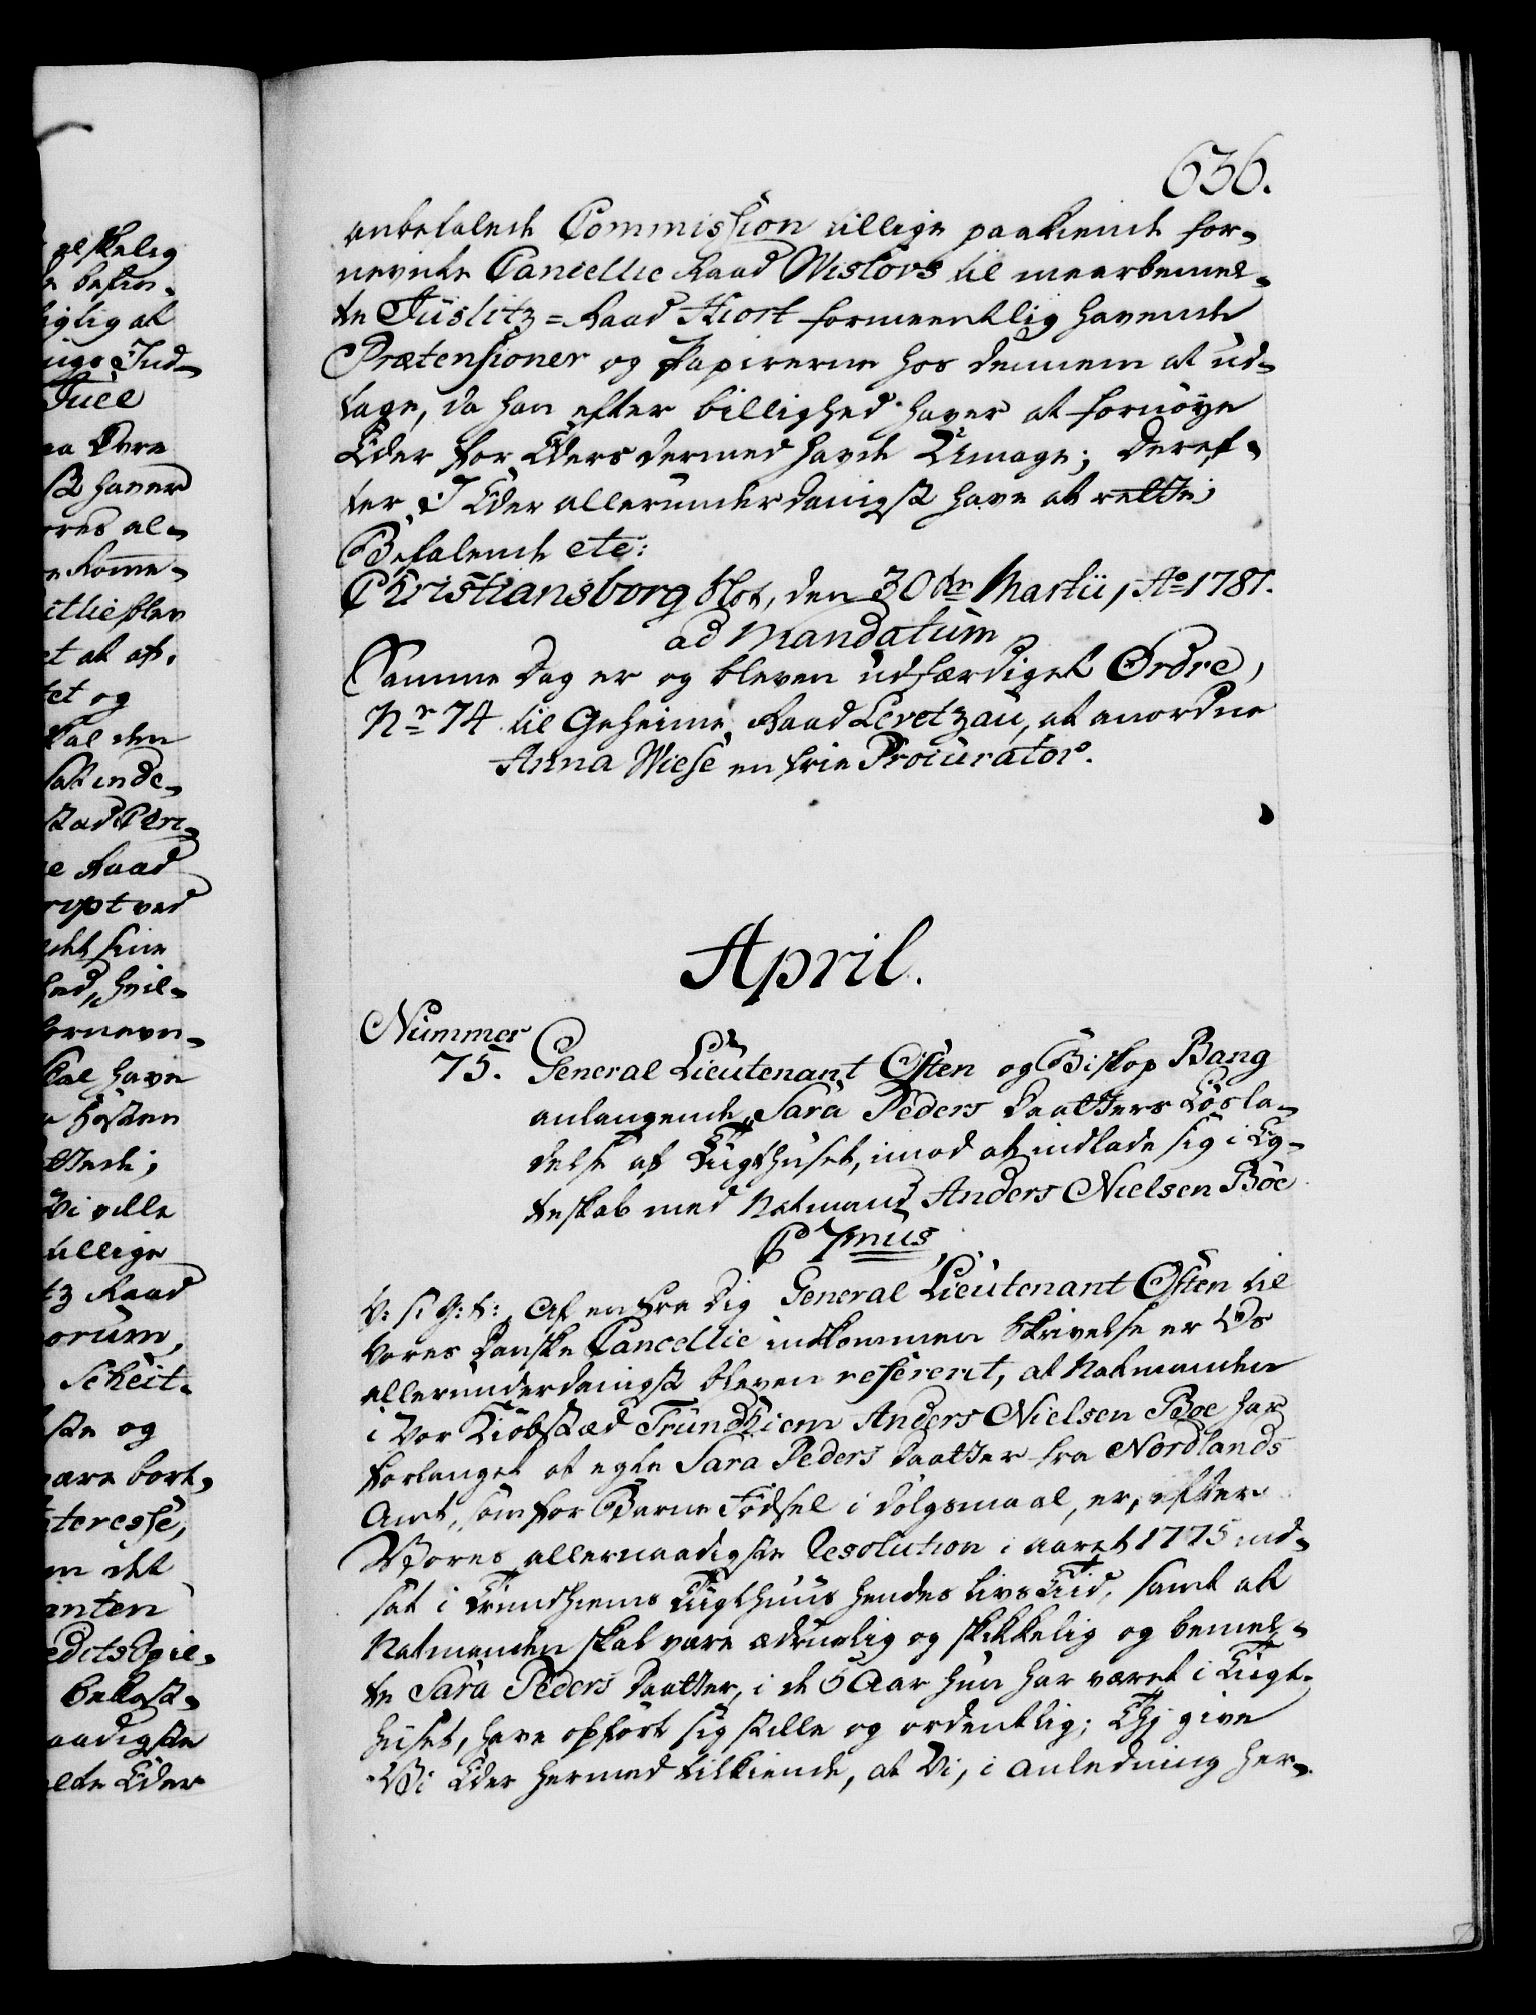 636.
anbefalende Commission tillige paakiende for-
nevnte Cancellie Raad Wislövs til meerbemel-
te Justitz=Raad Hiort formeentlig havende
Prætensioner og Papirerne hos dennem at ud-
tage, da han efter billighed haver at fornöye
Eder for Eders dermed havde Umage; Deref-
ter I Eder allerunderdanigst have at rette;
Befalende etc:
Christiansborg Slot, den 30te Martii, Ao 1781.
ad Mandatum
Samme Dag er og bleven udfærdiget Ordre,
Nr 74 til Geheime Raad Levetzau, at anordne
Anna Wiese en frie Procurator.
April.
Nummer
75. General Lieutenant Osten og Biskop Bang
anlangende Sara Peders Daatters Lösla-
delse af Tugthuset, imod at indlade sig i Eg-
teskab med Natmand Anders Nielsen Böe
C 7mus
V: s: G: t: Af en fra Dig General Lieutenant Osten til
Vores Danske Cancellie indkommen Skrivelse er Os
allerunderdanigst bleven refereret, at Natmanden
i Vor Kiöbstæd Trundhiem Anders Nielsen Boe har
forlanget at egte Sara Peders Daatter fra Nordlands
Amt, som for Barne Födsel i Dölgsmaal, er, efter
Vores allernaadigste Resolution i Aaret 1775 ind-
sat i Trundhiems Tugthuus hendes Livs Tid, samt at
Natmanden skal være ædruelig og skikkelig og bemel-
te Sara Peders Daatter, i de 5 Aar hun har været i Tugt-
huset, have opfört sig stille og ordentlig; Thi give
Vi Eder hermed tilkiende, at Vi, i Anledning her-
gelskelig
befin-
Juel
haver
og
ved
Vi ville
tillige
Raad
Scheit-
og
være bort-
det
Eder